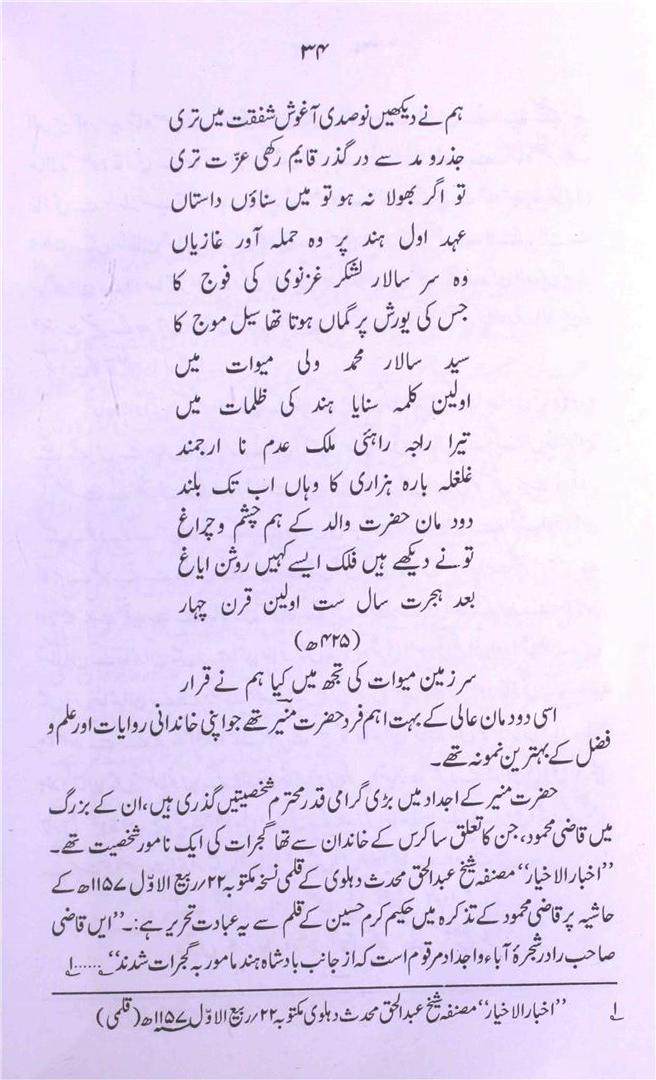 ۳۴
ہم نے دیکھیں نو صدی آغوش شفقت میں تری
جذر و مد سے در گذر قایم رکھی عزّت تری
تو اگر بھولا نہ ہو تو میں سناؤں داستاں
عہد اول ہند پر وہ حملہ آور غازیاں
وہ سر سالار لشکر غزنوی کی فوج کا
جس کی یورش پر گماں ہوتا تھا سیل موج کا
سید سالار محمد ولی میوات میں
اولین کلمہ سنایا ہند کی ظلمات میں
تیرا راجہ راہئی ملک عدم نا ارجمند
غلغلہ بارہ ہزاری کا وہاں اب تک بلند
دود مان حضرت والد کے ہم چشم و چراغ
تونے دیکھے ہیں فلک ایسے کہیں روشن ایاغ
بعد ہجرت سال ست اولین قرن چہار
(۴۲۵ھ)
سر زمین میوات کی تجھ میں کیا ہم نے قرار
اسی دود مان عالی کے بہت اہم فرد حضرت منیر تھے جو اپنی خاندانی روایات اور علم و
فضل کے بہترین نمونہ تھے۔
حضرت منیر کے اجداد میں بڑی گرامی قدر محترم شخصیتیں گذری ہیں، ان کے بزرگ
میں قاضی محمود، جن کا تعلق ساکرس کے خاندان سے تھا گجرات کی ایک نامور شخصیت تھے۔
’’اخبار الاخیار‘‘ مصنفہ شیخ عبدالحق محدث دہلوی کے قلمی نسخہ مکتوبہ ۲۲؍ربیع الاوّل ۱۱۵۷ھ کے
حاشیہ پر قاضی محمود کے تذکرہ میں حکیم کرم حسین کے قلم سے یہ عبادت تحریر ہے:۔’’ایں قاضی
صاحب را در شجرۂ آباء و اجداد مرقوم است کہ از جانب بادشاہ ہند مامور بہ گجرات شدند‘‘......۱؎
۱؎ ’’اخبار الاخیار‘‘ مصنفہ شیخ عبدالحق محدث دہلوی مکتوبہ ۲۲؍ربیع الاوّل ۱۱۵۷ھ (قلمی)